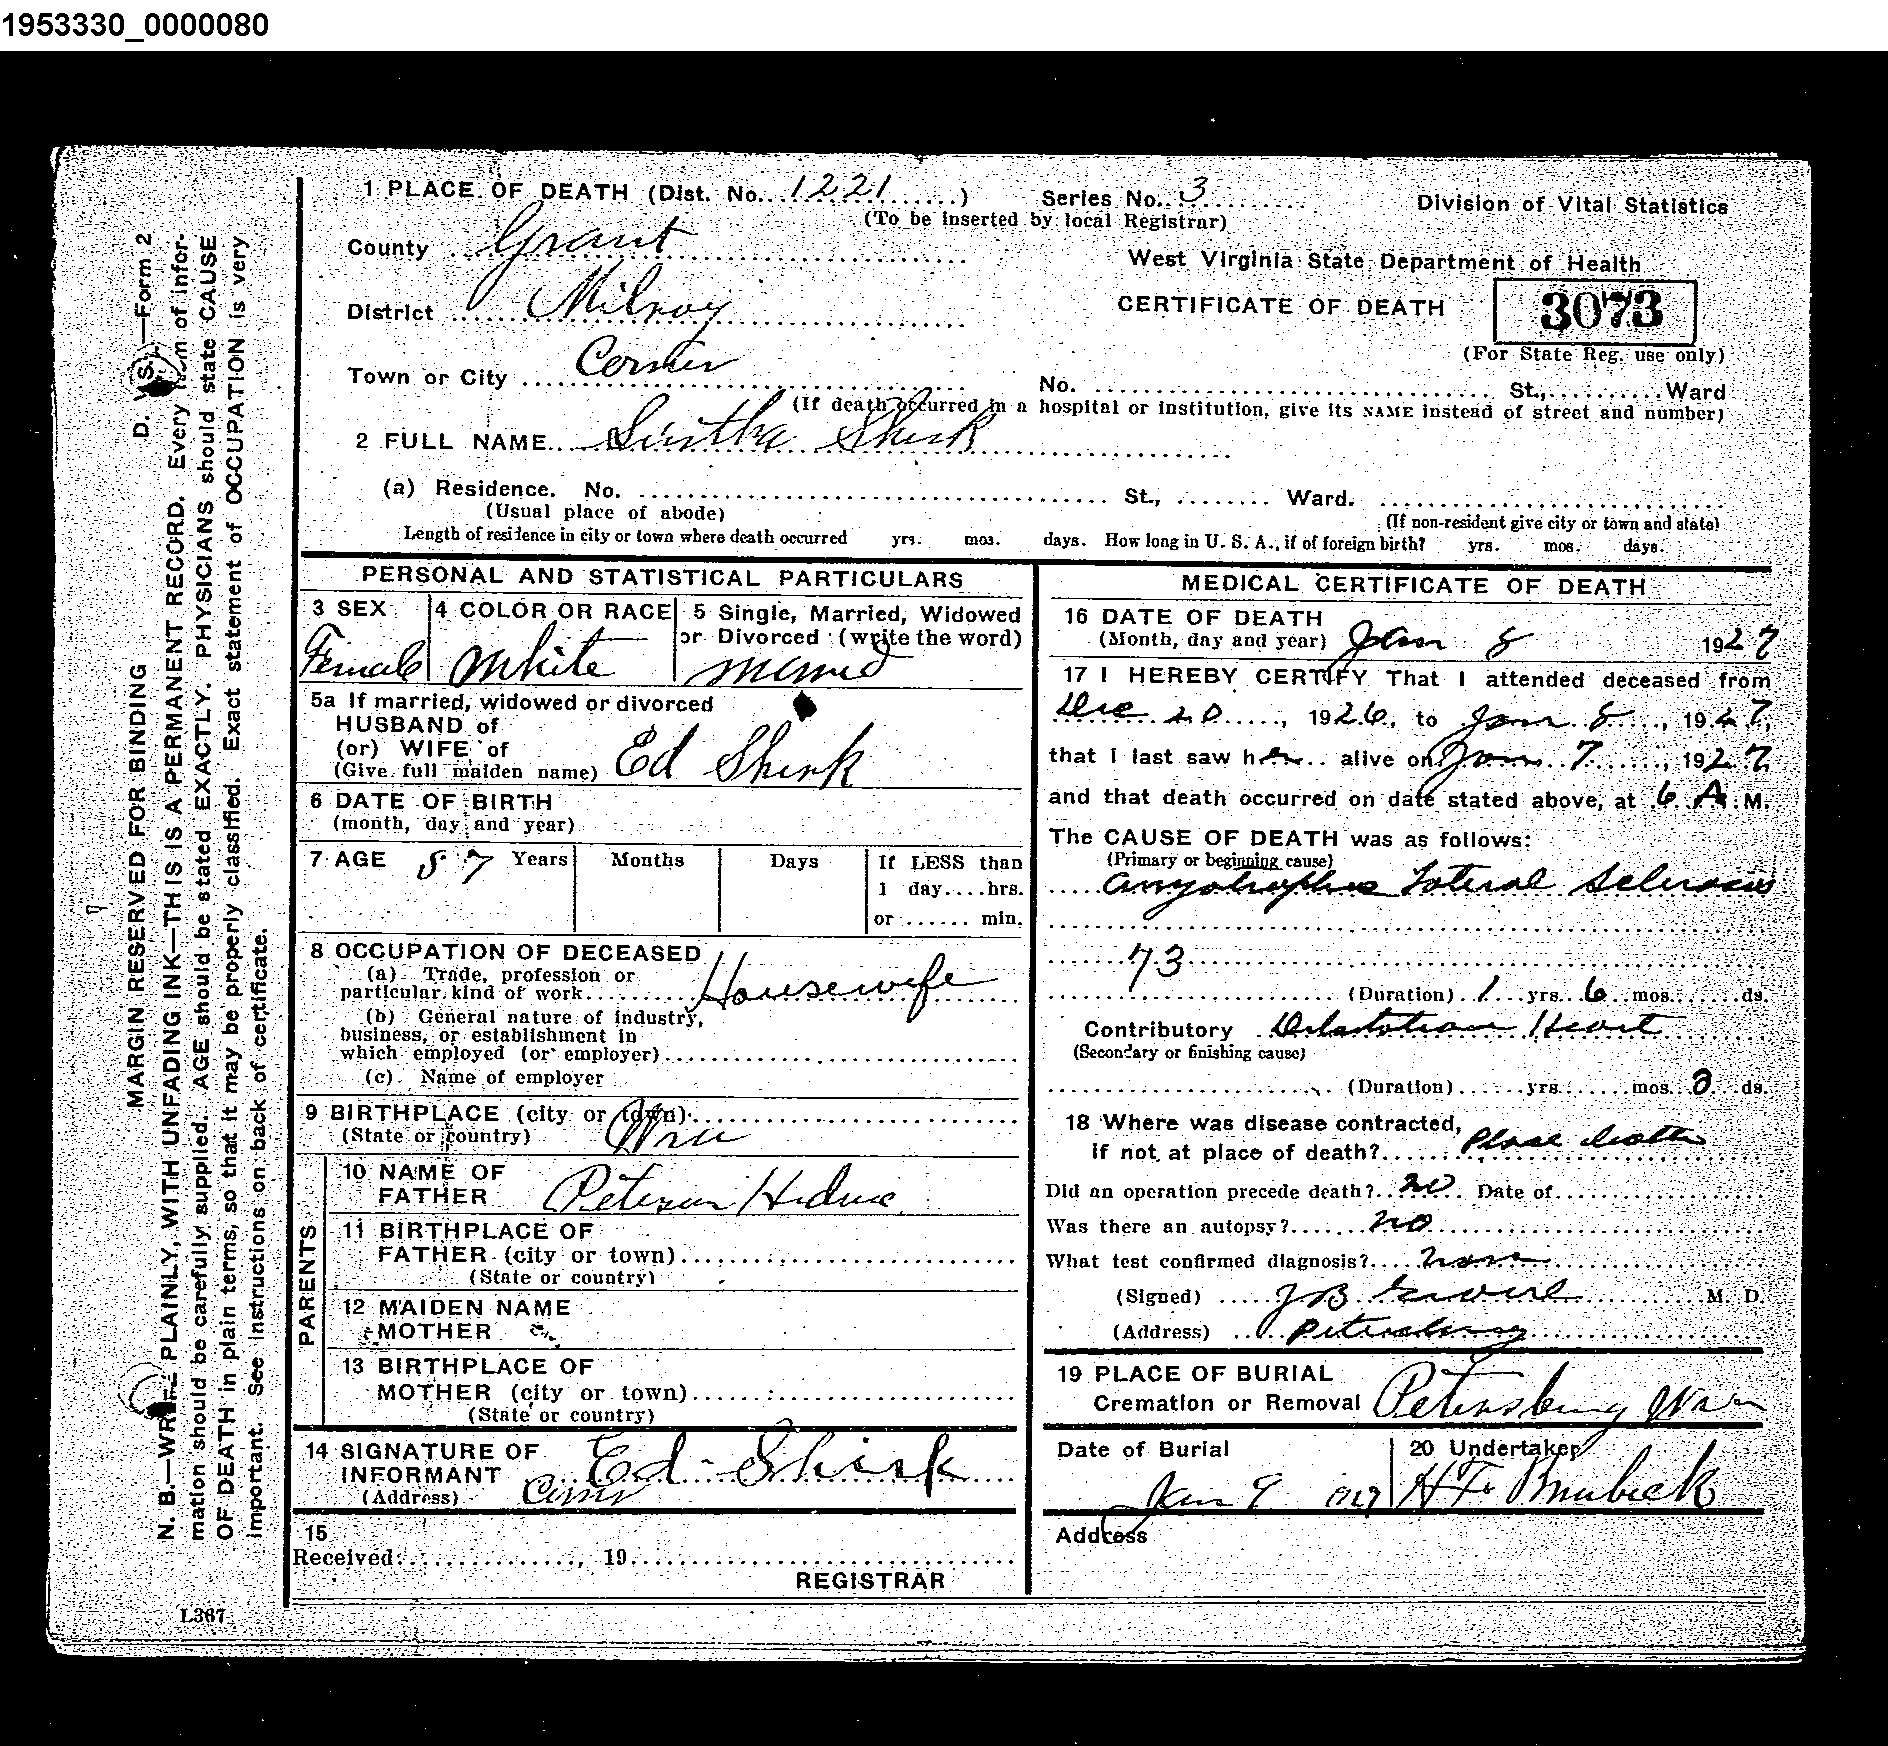 1953330_0000080
1 PLACE OF DEATH (Dist. No. 1221 ) Series No. 3 Division of Vital Statistics
(To be inserted by local Registrar)
County Grant
West Virginia State Department of Health
District Milroy
CERTIFICATE OF DEATH 3073
(For State Reg. use only)
Town or City
No. St., Ward
(If death occurred in a hospital or institution, give its NAME instead of street and number)
2 FULL NAME Shirk
(a) Residence. No. St., Ward.
(Usual place of abode)
(If non-resident give city or town and state)
Length of residence in city or town where death occurred yrs. mos. days. How long in U. S. A., if of foreign birth? yrs. mos. days.
PERSONAL AND STATISTICAL PARTICULARS
3 SEX 4 COLOR OR RACE 5 Single, Married, Widowed
or Divorced (write the word)
Female White Married
5a If married, widowed or divorced
HUSBAND of
(or) WIFE of
(Give full maiden name) Ed Shirk
6 DATE OF BIRTH
(month, day and year)
7 AGE 57 Years Months Days If LESS than
1 day....hrs.
or ...... min.
8 OCCUPATION OF DECEASED
(a) Trade, profession or
particular kind of work Housewife
(b) General nature of industry,
business, or establishment in
which employed (or employer)
(c) Name of employer
9 BIRTHPLACE (city or town)
(State or country)
PARENTS
10 NAME OF
FATHER
11 BIRTHPLACE OF
FATHER (city or town)
(State or country)
12 MAIDEN NAME
MOTHER
13 BIRTHPLACE OF
MOTHER (city or town)
(State or country)
14 SIGNATURE OF
INFORMANT Ed Shirk
(Address)
15
Received , 19
REGISTRAR
MEDICAL CERTIFICATE OF DEATH
16 DATE OF DEATH
(Month, day and year) Jan 8 1927
17 I HEREBY CERTIFY That I attended deceased from
Dec 20, 1926, to Jan 8, 1927,
that I last saw her alive on Jan 7, 1927,
and that death occurred on date stated above, at 6 A. M.
The CAUSE OF DEATH was as follows:
(Primary or beginning cause)
Lateral Sclerosis
73
(Duration) 1 yrs 6 mos. ds.
Contributory Heart
(Secondary or finishing cause)
(Duration) yrs mos ds.
18 Where was disease contracted,
if not at place of death? Place death
Did an operation precede death? no Date of
Was there an autopsy? no
What test confirmed diagnosis? none
(Signed) M. D.
(Address) Petersburg
19 PLACE OF BURIAL
Cremation or Removal Petersburg
Date of Burial
Jan 9 1927
20 Undertaker
Address
D. V. S.—Form 2
MARGIN RESERVED FOR BINDING
N. B.—WRITE PLAINLY, WITH UNFADING INK—THIS IS A PERMANENT RECORD. Every item of infor-
mation should be carefully supplied. AGE should be stated EXACTLY. PHYSICIANS should state CAUSE
OF DEATH in plain terms, so that it may be properly classified. Exact statement of OCCUPATION is very
important. See instructions on back of certificate.
L367